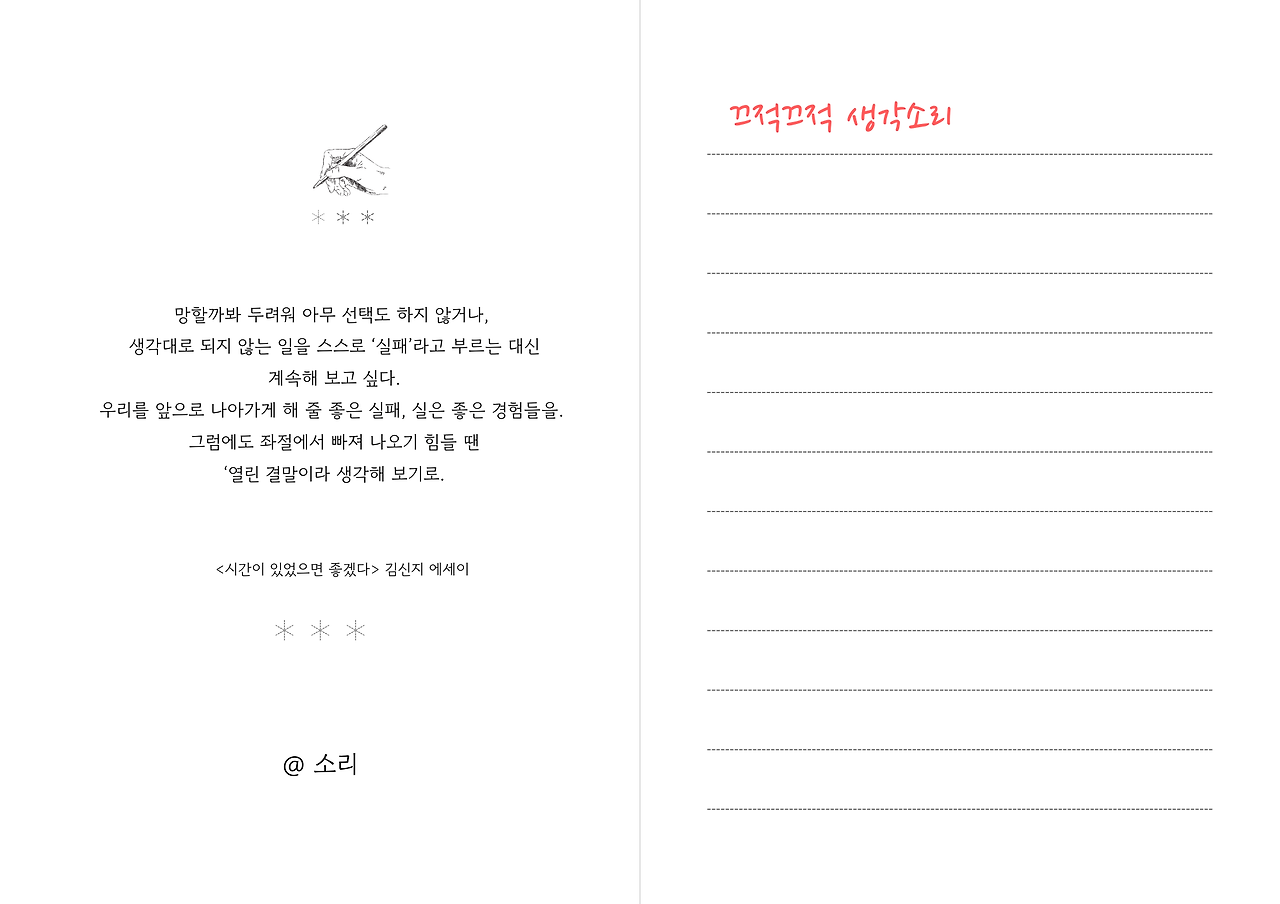 망할까봐 두려워 아무 선택도 하지 않거나,
생각대로 되지 않는 일을 스스로 ‘실패’라고 부르는 대신
계속해 보고 싶다.
우리를 앞으로 나아가게 해 줄 좋은 실패, 실은 좋은 경험들을.
그럼에도 좌절에서 빠져 나오기 힘들 땐
‘열린 결말이라 생각해 보기로.
<시간이 있었으면 좋겠다> 김신지 에세이
@ 소리
끄적끄적 생각소리